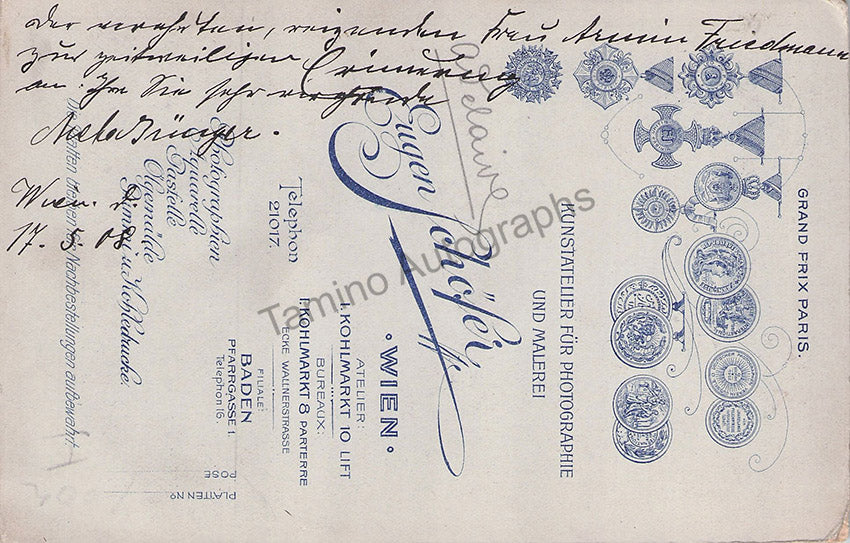 Der verehrten, reizenden Frau Armin Friedmann
zur zeitweiligen Erinnerung
an Ihre Sie sehr verehrende
Wien. d.
17. 5. 08
Adelaide
GRAND PRIX PARIS.
KUNSTATELIER FÜR PHOTOGRAPHIE
UND MALEREI
Eugen Schöfer
WIEN.
ATELIER:
I. KOHLMARKT 10 LIFT
BUREAUX:
I. KOHLMARKT 8 PARTERRE
ECKE WALLNERSTRASSE
Telephon
21017.
FILIALE:
BADEN
PFARRGASSE 1.
Telephon 16.
Photographien
Aquarelle
Pastelle
Ölgemälde
Die Platten bleiben für Nachbestellungen aufbewahrt
POSE
PLATTEN No
Tamino Autographs